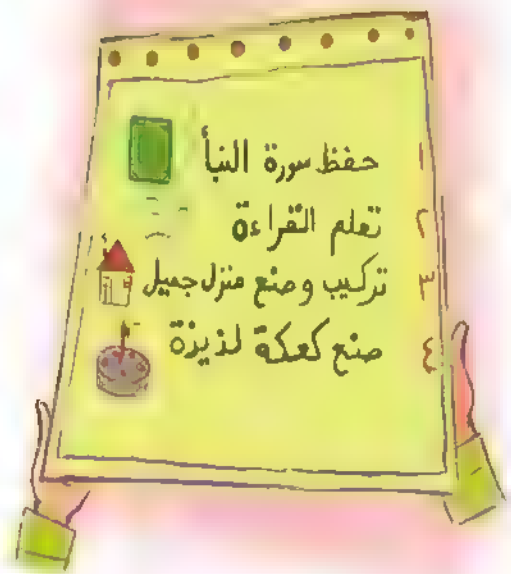 ١ حفظ سورة النبأ
٢ تعلم القراءة
٣ تركيب وصنع منزل جميل
٤ صنع كعكة لذيذة